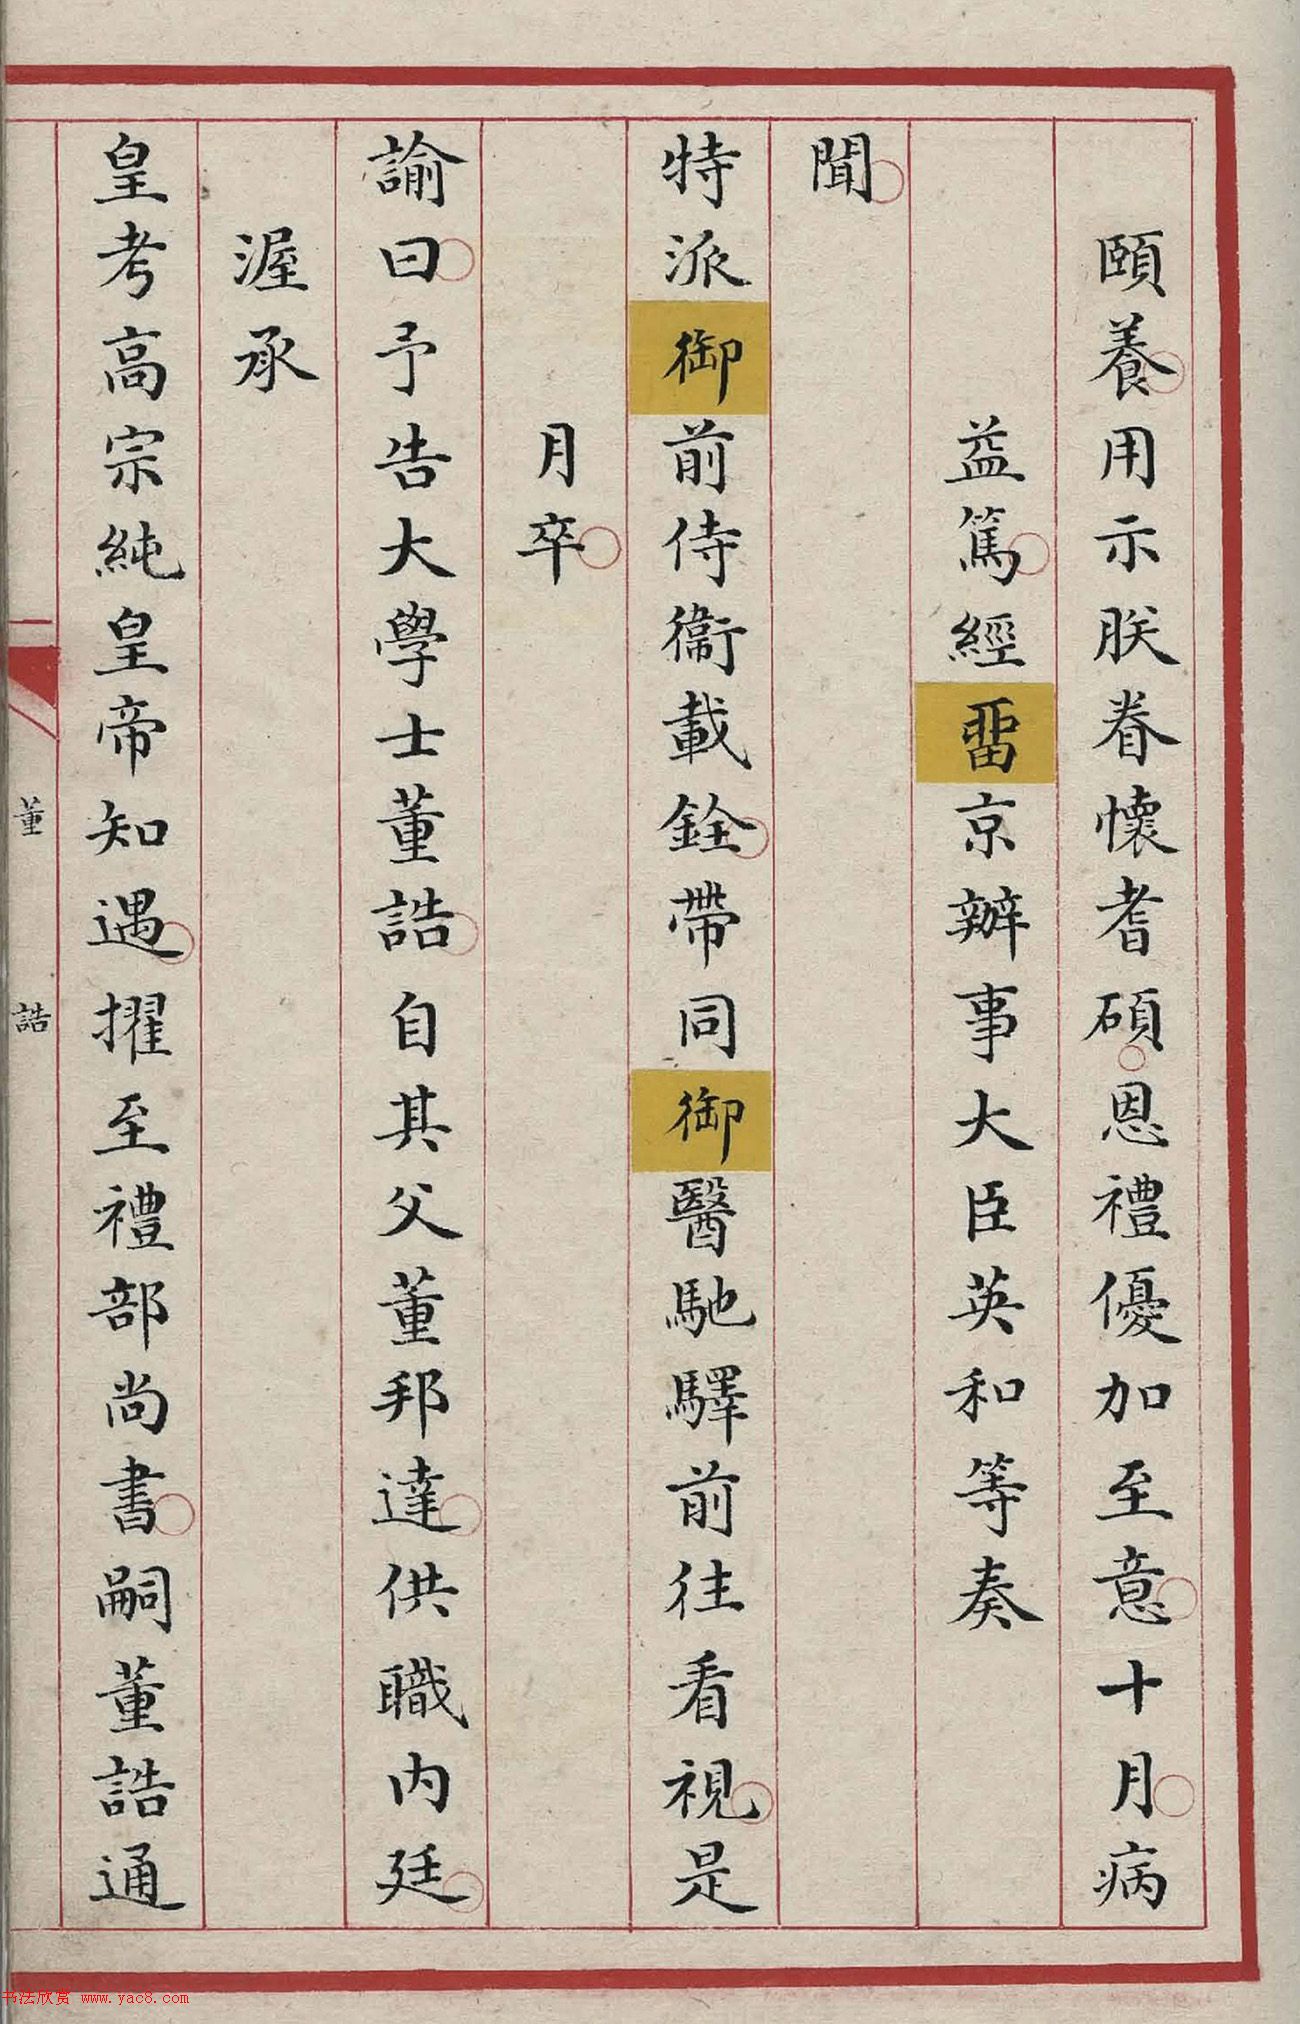 頤養用示朕眷懷耆碩恩禮優加至意十月病
益篤經畱京辦事大臣英和等奏
聞
特派御前侍衞載銓帶同御醫馳驛前往看視是
月卒
諭曰予告大學士董誥自其父董邦達供職內廷
渥承
皇考高宗純皇帝知遇擢至禮部尚書嗣董誥通
董誥
书法欣赏 www.yac8.com